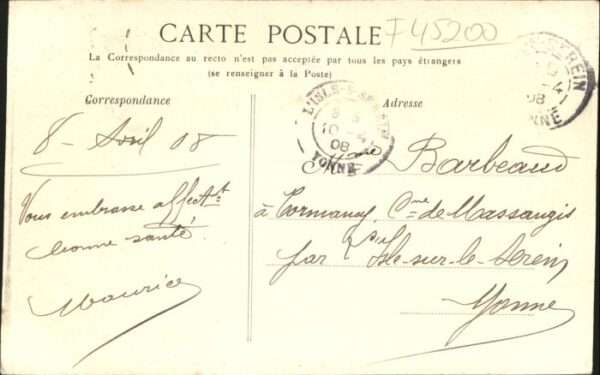 CARTE POSTALE
F45200
La Correspondance au recto n'est pas acceptée par tous les pays étrangers
(se renseigner à la Poste)
Correspondance
Adresse
8 - Avril 08
Vous embrasse affect.t
bonne santé.
Maurice
L'ISLE-S-SEREIN
10 - 4
08
YONNE
Barbeaud
à Tormancy, Cne de Massangis
par L'Isle-sur-le-Serein
Yonne
SEREIN
08